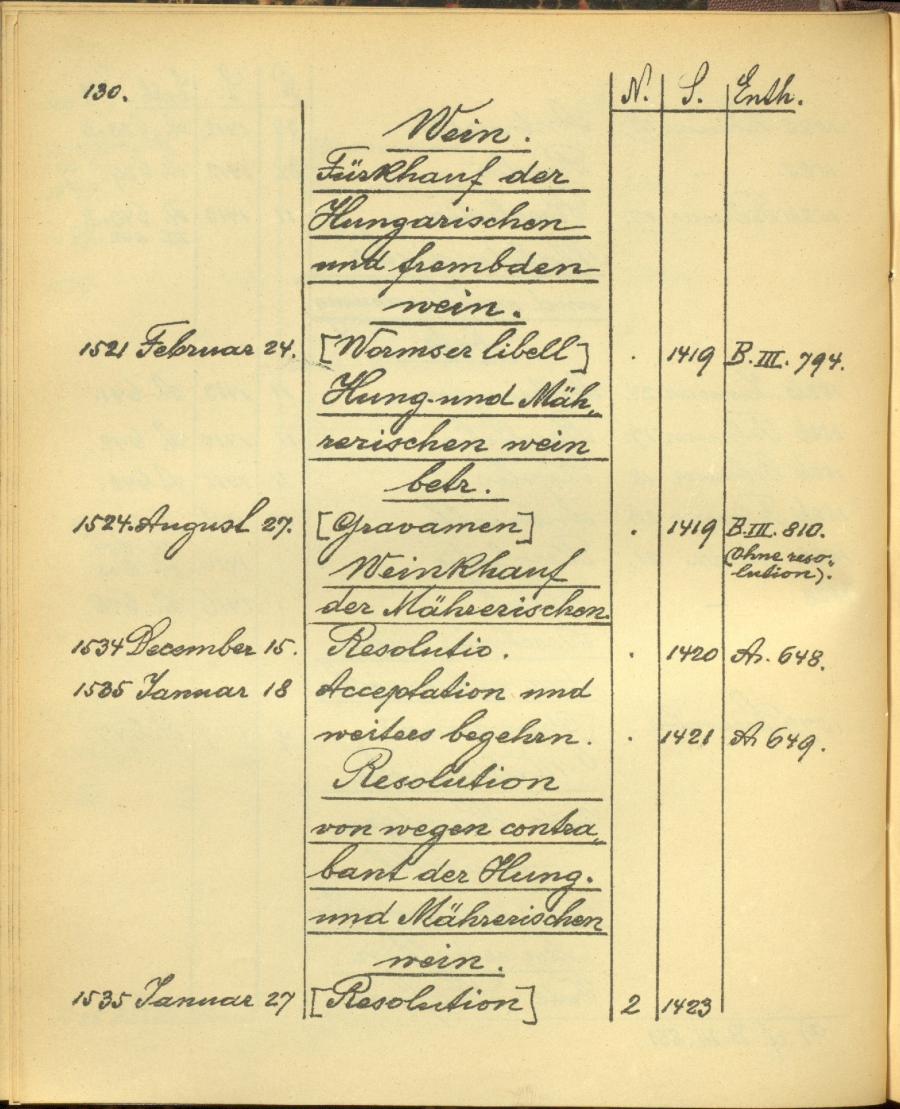 130. N. S. Enth.
Wein.
Fürkhauf der
Hungarischen
und frembden
wein.
1521 Februar 24. [Wormser libell] . 1419 B. III. 794.
Hung. und Mäh„
rerischen wein
betr.
1524. August 27. [Gravamen] . 1419 B. III. 810.
(Ohne reso„
lution).
Weinkhauf
der Mährerischen.
1534 December 15. Resolutio. . 1420 A. 648.
1535 Januar 18 Acceptation und
weiters begehrn. . 1421 A 649.
Resolution
von wegen contra„
bant der Hung.
und Mährerischen
wein.
1535 Januar 27 [Resolution] 2 1423